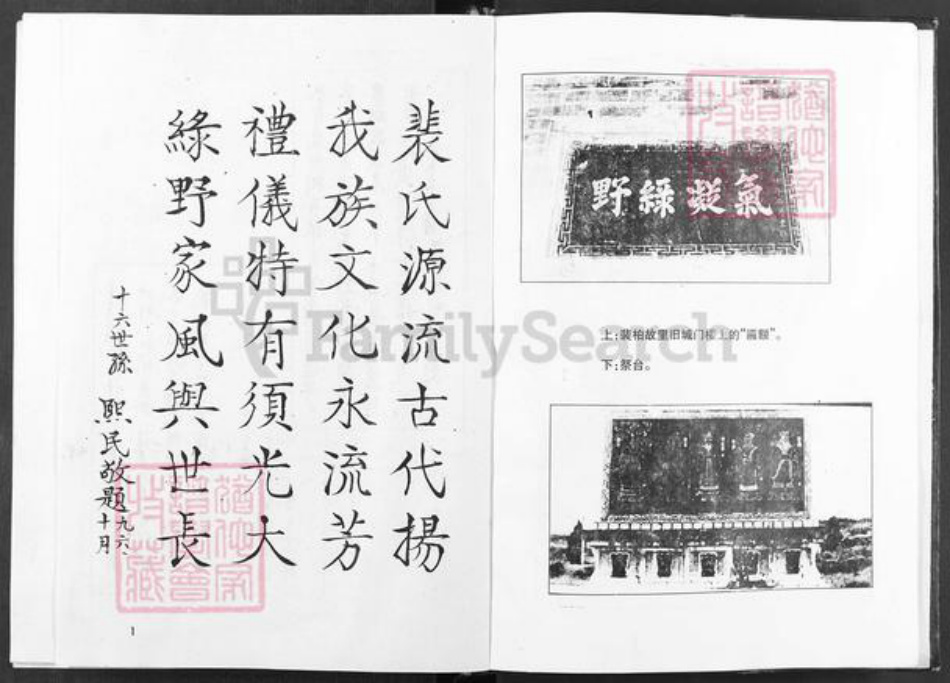 裴氏源流古代揚
我族文化永流芳
禮儀特有須光大
綠野家風與世長
十六世孫 熙民敬題 九六.十月
1
氣凝綠野
上:裴柏故里旧城门楼上的“匾额”。
下:祭台。
FamilySearch